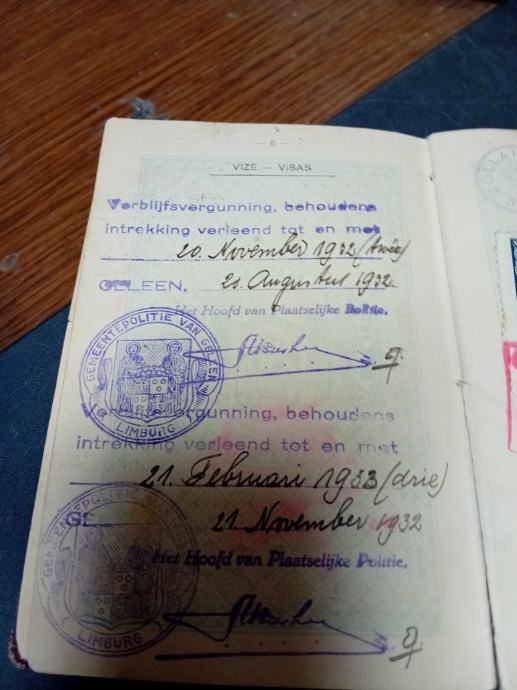 — 6 —
VIZE — VISAS
Verblijfsvergunning, behoudens
intrekking verleend tot en met
20. November 1932 (twee)
GELEEN, 20. Augustus 1932
Het Hoofd van Plaatselijke Politie.
GEMEENTEPOLITIE VAN GELEEN
LIMBURG
Verblijfsvergunning, behoudens
intrekking verleend tot en met
21. Februari 1933 (drie)
GE 21. November 1932
Het Hoofd van Plaatselijke Politie.
GEMEENTEPOLITIE VAN
LIMBURG